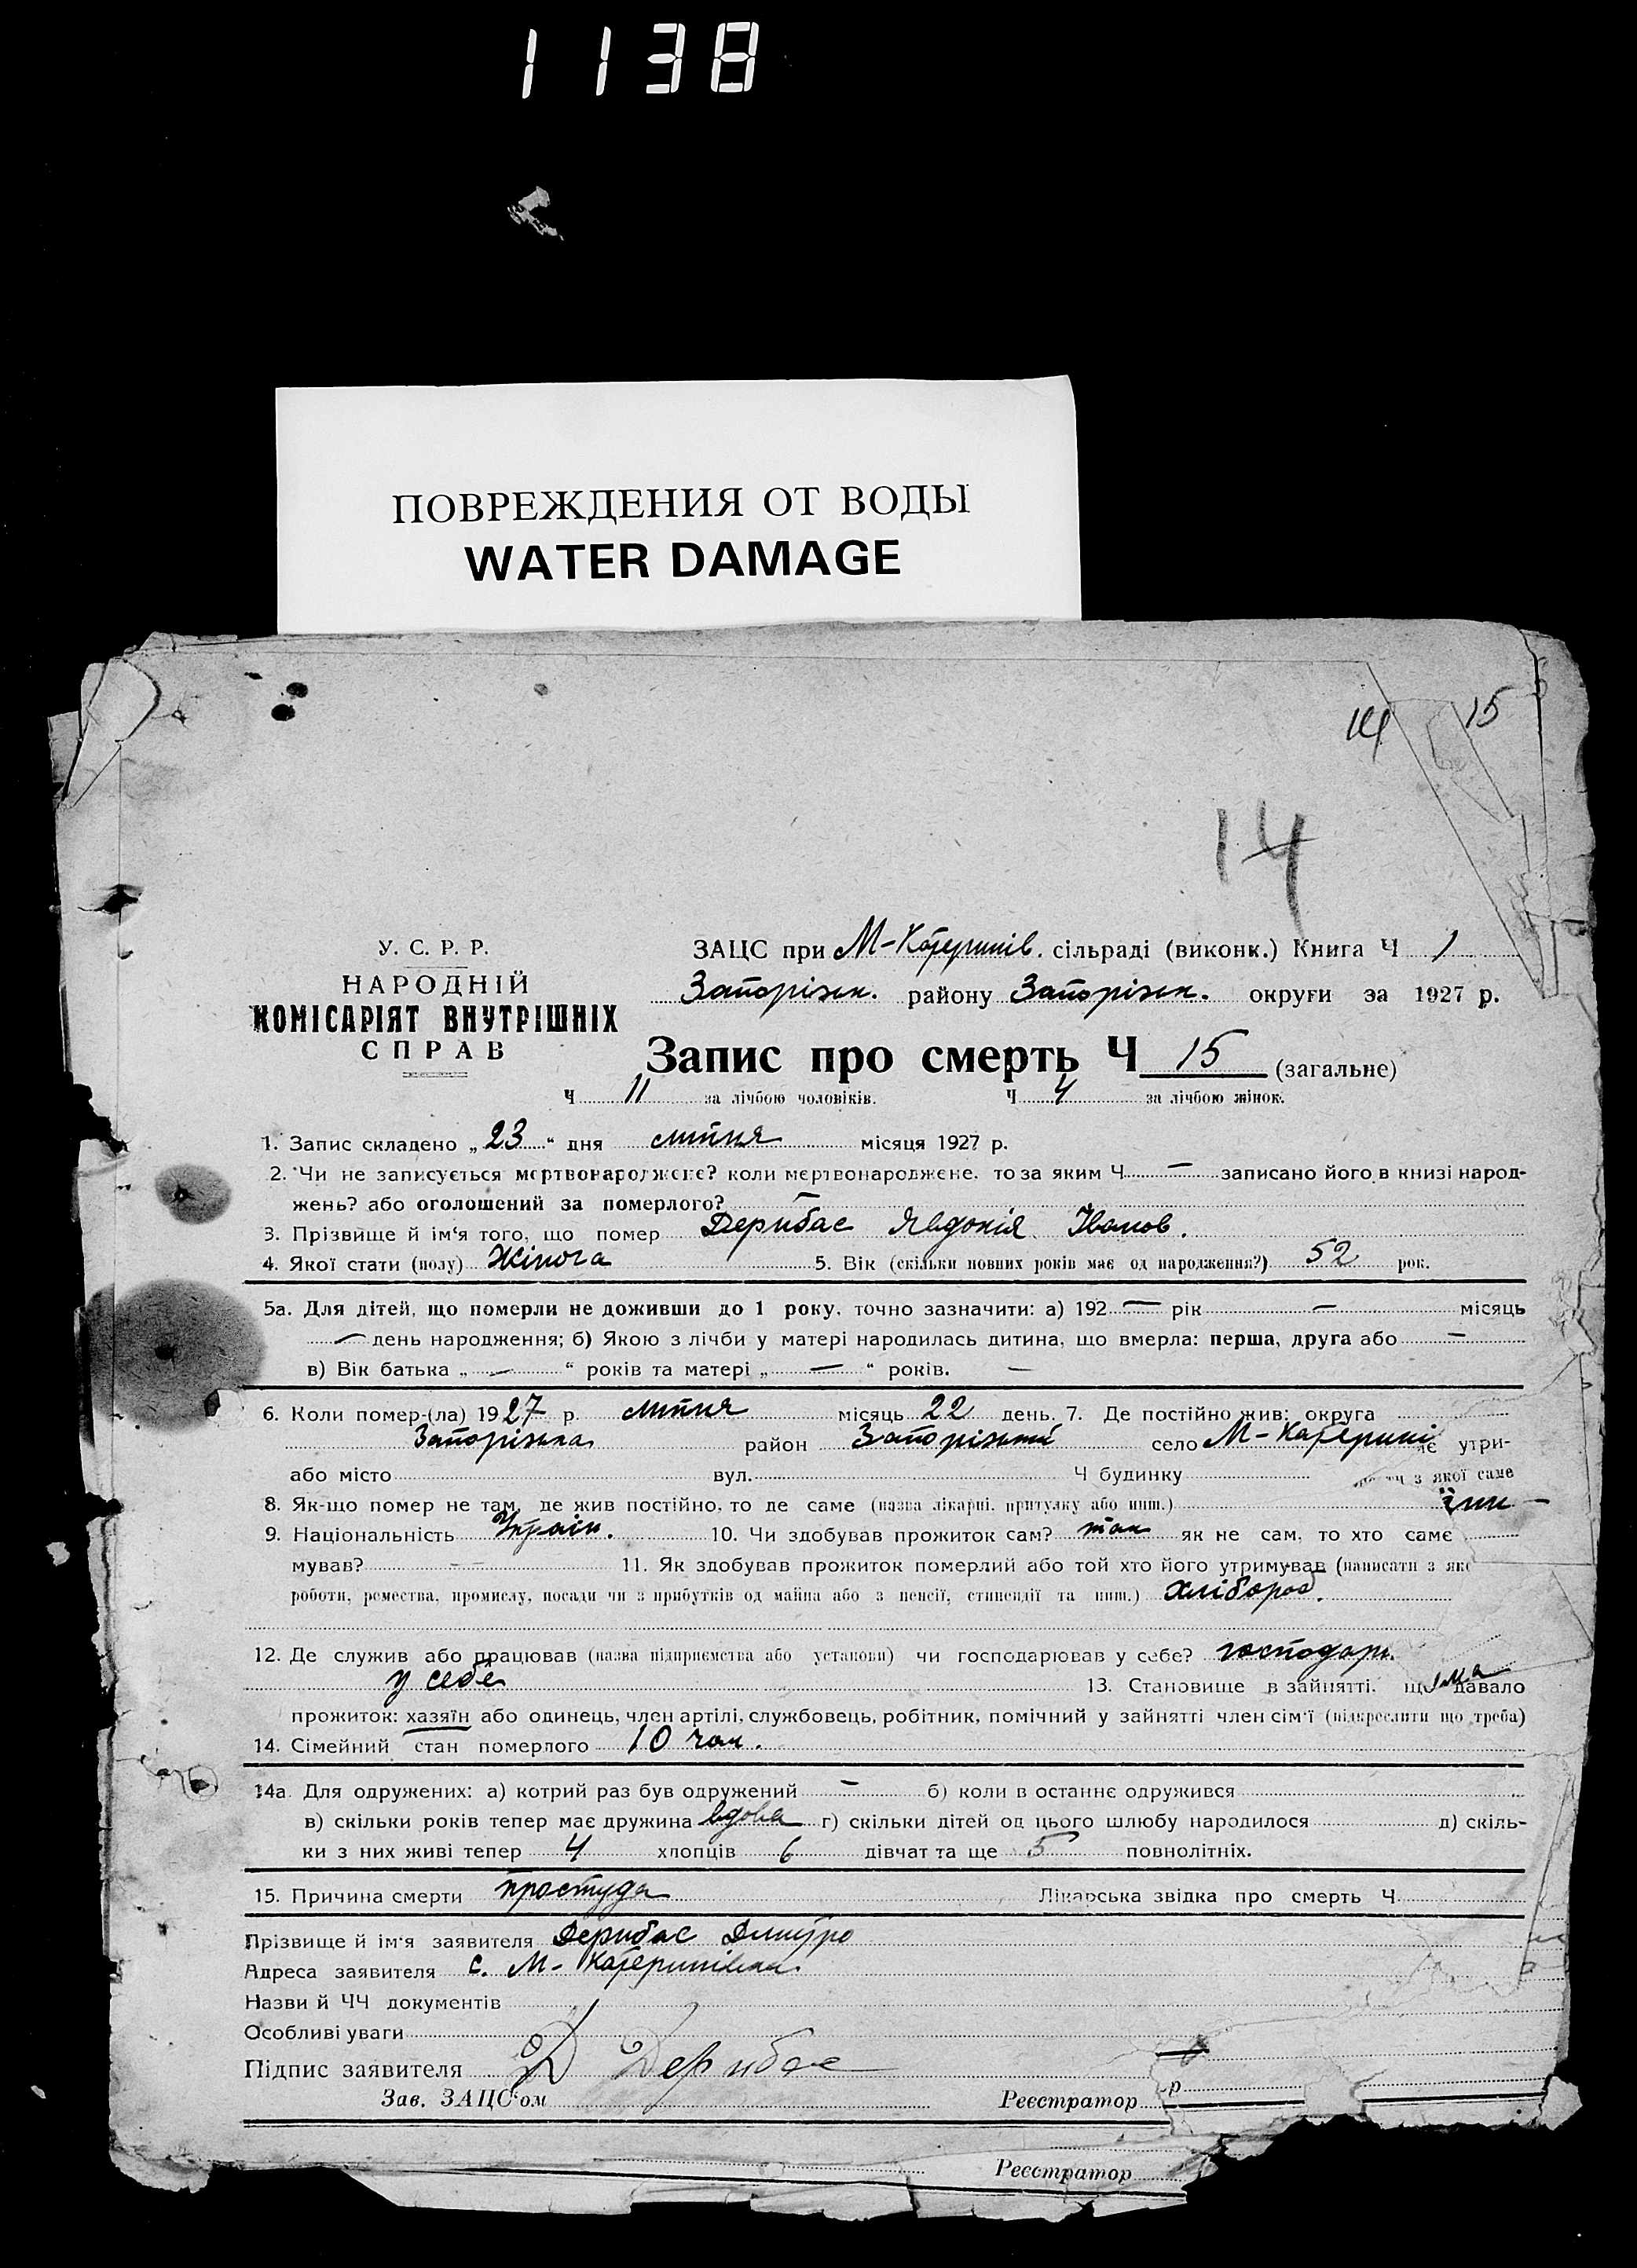 1138
ПОВРЕЖДЕНИЯ ОТ ВОДЫ
WATER DAMAGE
14 15
14
У. С. Р. Р.
НАРОДНІЙ
КОМІСАРІЯТ ВНУТРІШНІХ
СПРАВ
ЗАЦС при М-Катеринів. сільраді (виконк.) Книга Ч 1
Запорізьк. району Запорізьк. округи за 1927 р.
Запис про смерть Ч 15 (загальне)
Ч 11 за лічбою чоловіків. Ч 4 за лічбою жінок.
1. Запис складено „23“ дня липня місяця 1927 р.
2. Чи не записується мертвонароджене? коли мертвонароджене. то за яким Ч — записано його в книзі народ-
жень? або оголошений за померлого? —
3. Прізвище й ім'я того, що помер Дерибас Явдокія Іванов.
4. Якої стати (полу) Жіноча 5. Вік (скільки повних років має од народження?) 52 рок.
5а. Для дітей, що померли не доживши до 1 року, точно зазначити: а) 192 — рік — місяць
— день народження; б) Якою з лічби у матері народилась дитина, що вмерла: перша, друга або —
в) Вік батька „ — “ років та матері „ — “ років. —
6. Коли помер-(ла) 1927 р. липня місяць 22 день. 7. Де постійно жив: округа
Запорізька район Запорізький село М-Катерині
або місто вул. Ч будинку з якої саме
утри-
8. Як-що помер не там, де жив постійно, то де саме (назва лікарні, притулку або инш.)
9. Національність Украін. 10. Чи здобував прожиток сам? так як не сам, то хто саме
мував? — 11. Як здобував прожиток померлий або той хто його утримував (написати з
роботи, ремества, промислу, посади чи з прибутків од майна або з пенсії, стипендії та инш.) хлібороб.
12. Де служив або працював (назва підприємства або установи) чи господарював у себе? господарь.
у себе 13. Становище в зайнятті, давало
прожиток: хазяїн або одинець, член артілі, службовець, робітник, помічний у зайнятті член сім'ї (підкреслити що треба)
14. Сімейний стан померлого 10 чол.
14а. Для одружених: а) котрий раз був одружений — б) коли в останнє одружився
в) скільки років тепер має дружина вдова г) скільки дітей од цього шлюбу народилося д) скіль-
ки з них живі тепер 4 хлопців 6 дівчат та ще 5 повнолітніх.
15. Причина смерти простуда Лікарська звідка про смерть Ч
Прізвище й ім'я заявителя Дерибас Дмитро
Адреса заявителя с. М-Катеринівка
Назви й ЧЧ документів
Особливі уваги
Підпис заявителя Д Дерибас
Зав. ЗАЦС'ом Реєстратор
Реєстратор